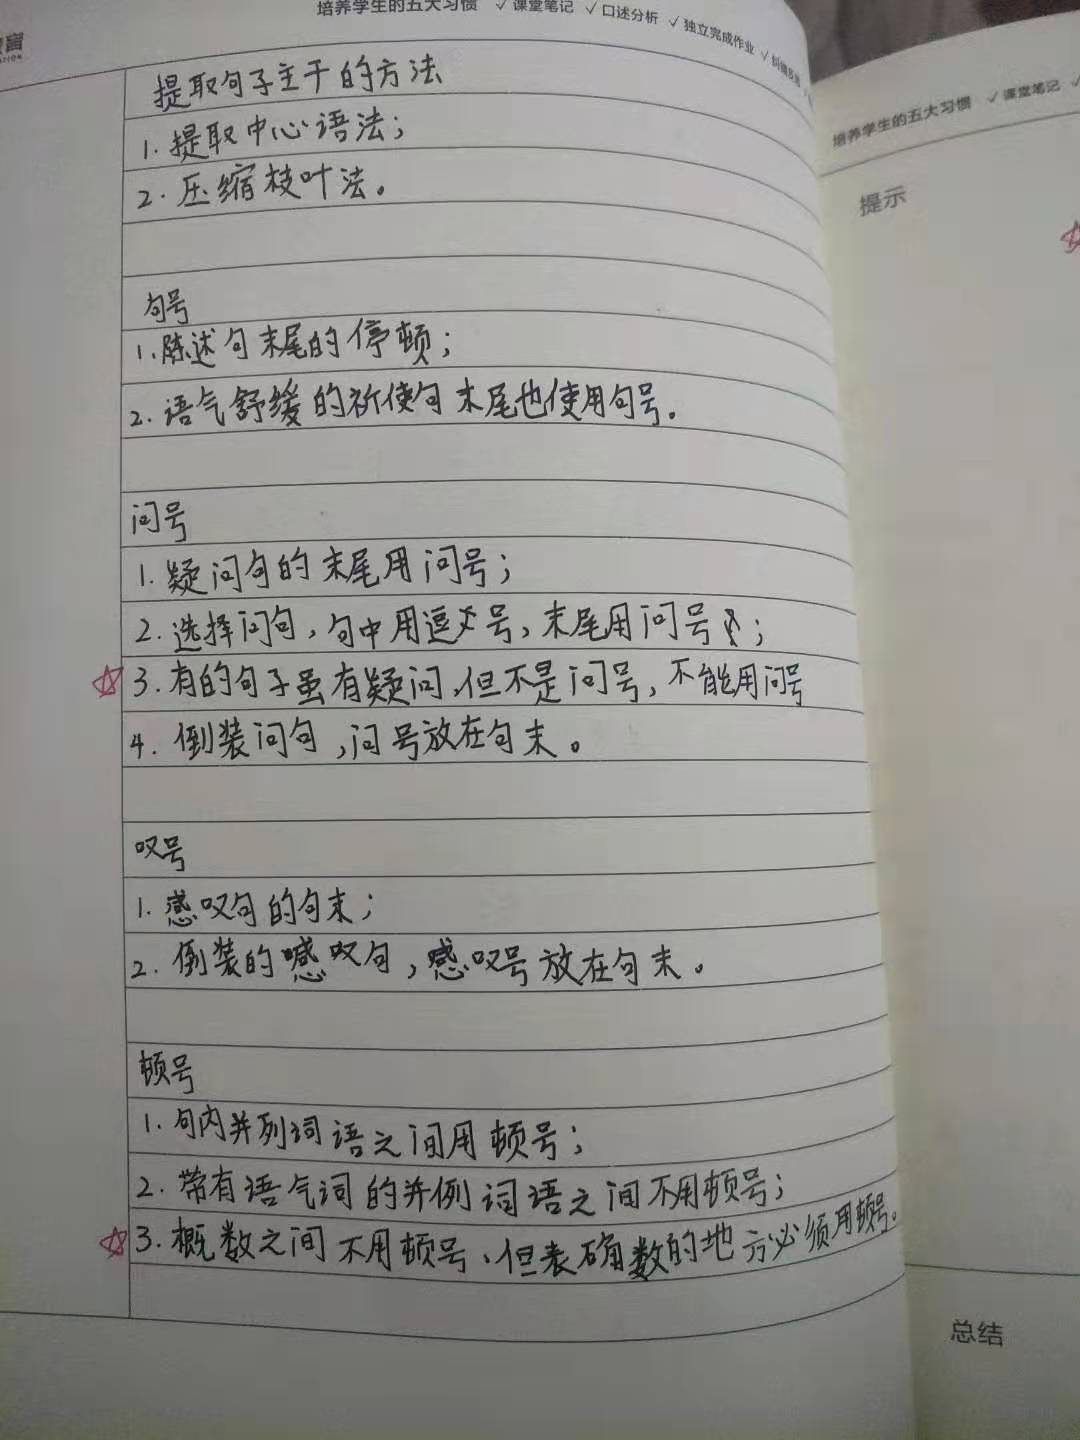 培养学生的五大习惯 ✓课堂笔记 ✓口述分析 ✓独立完成作业
提取句子主干的方法
1.提取中心语法；
2.压缩枝叶法。
句号
1.陈述句末尾的停顿；
2.语气舒缓的祈使句末尾也使用句号。
问号
1.疑问句的末尾用问号；
2.选择问句，句中用逗号，末尾用问号；
☆3.有的句子虽有疑问，但不是问号，不能用问号
4.倒装问句，问号放在句末。
叹号
1.感叹句的句末；
2.倒装的喊叹句，感叹号放在句末。
顿号
1.句内并列词语之间用顿号；
2.带有语气词的并例词语之间不用顿号；
☆3.概数之间不用顿号、但表确数的地方必须用顿号。
培养学生的五大习惯 ✓课堂笔记 ✓
提示
☆
总结